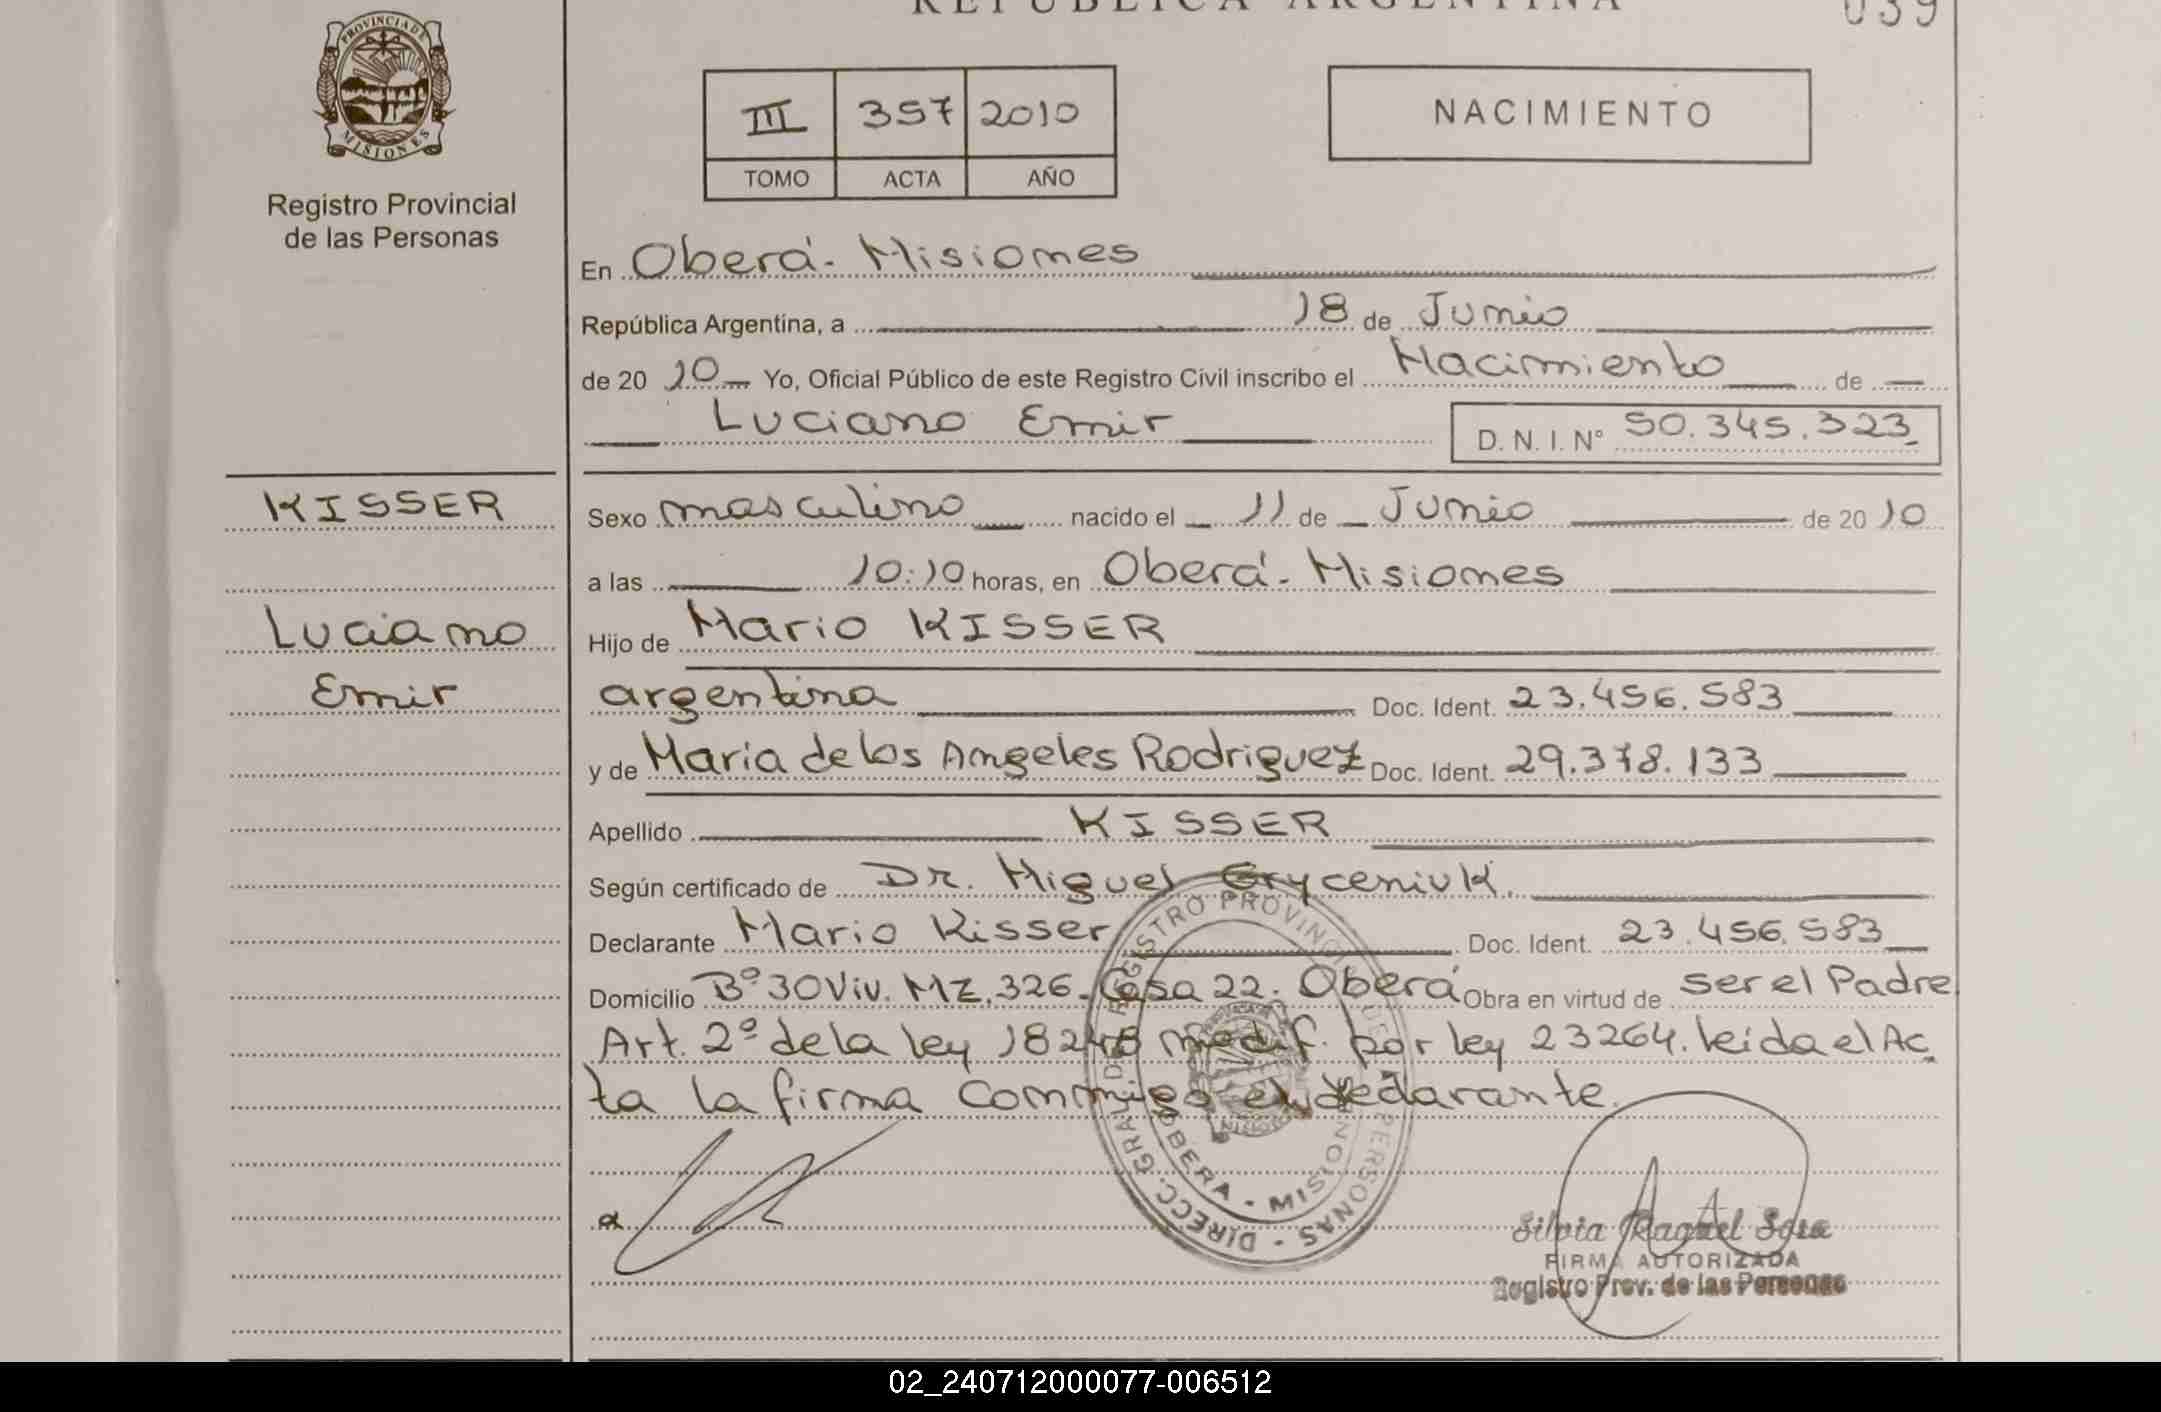 REPÚBLICA ARGENTINA
039
PROVINCIA DE MISIONES
Registro Provincial
de las Personas
III 357 2010
TOMO ACTA AÑO
NACIMIENTO
En Oberá - Misiones
República Argentina, a 18 de Junio
de 20 10 Yo, Oficial Público de este Registro Civil inscribo el Nacimiento de
Luciano Emir D. N. I. N° 50.345.323
KISSER
Luciano
Emir
Sexo masculino nacido el 11 de Junio de 20 10
a las 10:10 horas, en Oberá - Misiones
Hijo de Mario KISSER
argentina Doc. Ident. 23.456.583
y de Maria de los Angeles Rodriguez Doc. Ident. 29.378.133
Apellido KISSER
Según certificado de Dr. Miguel Gryceniuk.
Declarante Mario Kisser Doc. Ident. 23.456.583
Domicilio B° 30 Viv. MZ. 326. Casa 22. Oberá Obra en virtud de ser el Padre
Art. 2º de la ley 18248 modif. por ley 23264. leida el Ac
ta la firma conmigo el declarante.
DIRECC. GRAL. DE REGISTRO PROVINCIAL DE LAS PERSONAS
OBERA - MISIONES
Silvia Raquel Sosa
FIRMA AUTORIZADA
Registro Prov. de las Personas
02_240712000077-006512